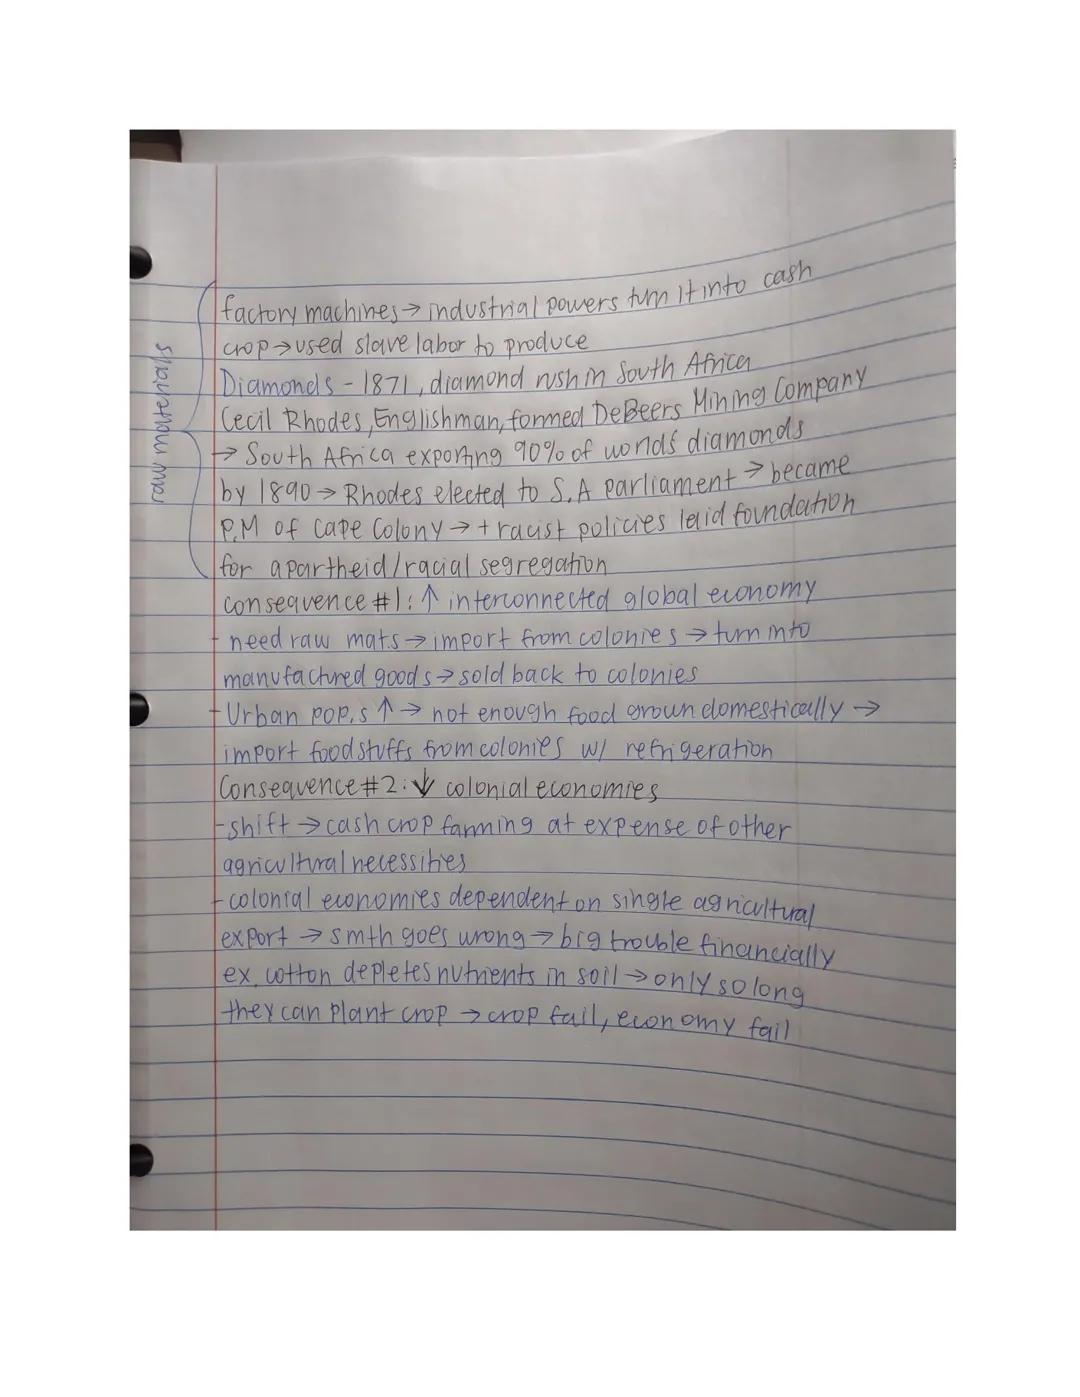 raw materials
factory machines → industrial powers turn it into cash
crop → used slave labor to produce
Diamonds - 1871, diamond rush in South Africa
Cecil Rhodes, Englishman, formed DeBeers Mining Company
→ South Africa exporting 90% of worlds diamonds
by 1890 → Rhodes elected to S.A parliament → became
P.M of Cape Colony → + racist policies laid foundation
for apartheid/racial segregation
consequence #1: ↑ interconnected global economy
- need raw mats → import from colonies → turn into
manufactured goods → sold back to colonies
- Urban pop.s ↑ → not enough food grown domestically →
import foodstuffs from colonies w/ refrigeration
Consequence #2: ↓ colonial economies
- shift → cash crop farming at expense of other
agricultural necessities
- colonial economies dependent on single agricultural
export → smth goes wrong → big trouble financially
ex. cotton depletes nutrients in soil → only so long
they can plant crop → crop fail, economy fail